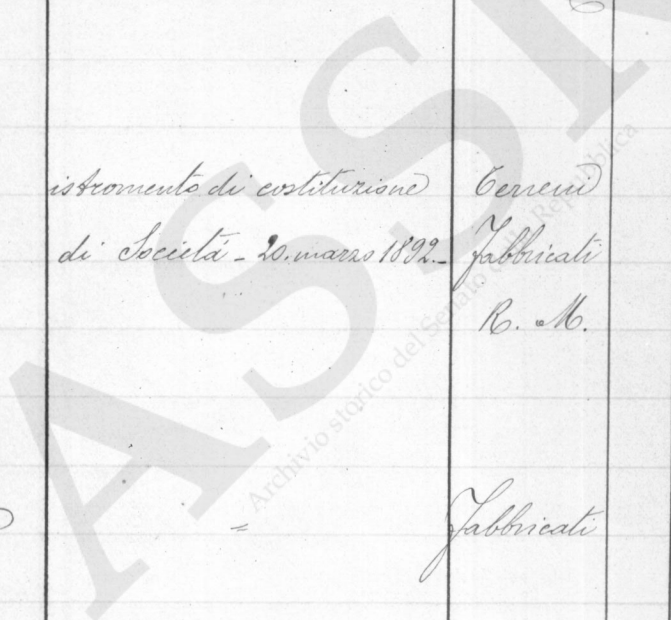 istromento di costituzione Terreni
di Società - 20. marzo 1892. - Fabbricati
R. M.
= Fabbricati
ASSR
Archivio storico del Senato della Repubblica